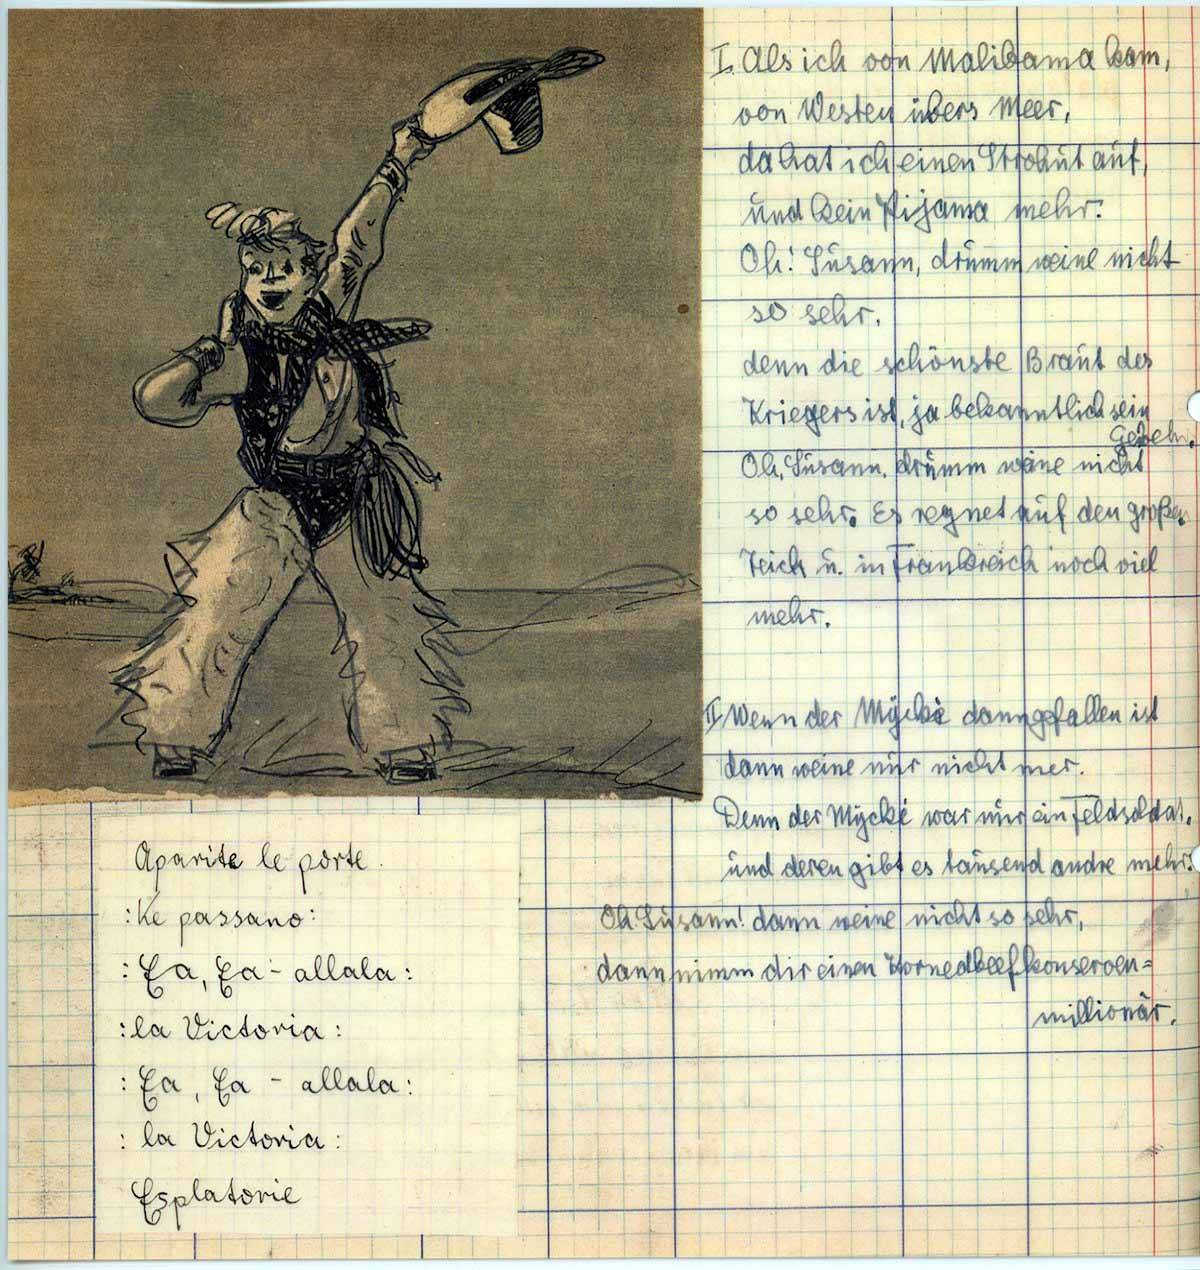 I. Als ich von Malibama kam,
von Westen übers Meer,
da hat ich einen Strohut auf,
und kein Pijama mehr.
Oh! Susann, drumm weine nicht
so sehr.
denn die schönste Braut des
Kriegers ist, ja bekanntlich sein
Gewehr.
Oh, Susann, drumm weine nicht
so sehr. Es regnet auf den großen
Teich u. in Frankreich noch viel
mehr.
II Wenn der Mÿcke dann gefallen ist
dann weine nur nicht mer.
Denn der Mÿcke war nur ein Feldsoldat,
und deren gibt es tausend andre mehr.
Oh! Susann! dann weine nicht so sehr,
dann nimm dir einen Kornedbeefkonserven=
millionär.
Aparite le porte.
:Ke passano:
:Ea, Ea - allala:
:la Victoria:
:Ea, Ea - allala:
:la Victoria:
Esplatorie